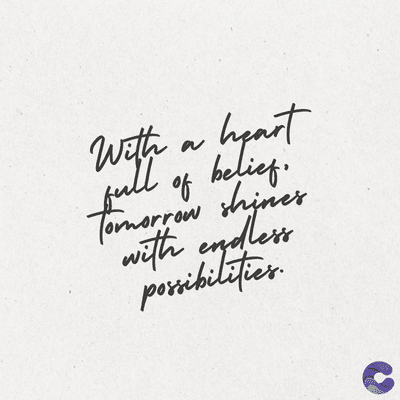 With a heart
full of belief,
tomorrow shines
with endless
possibilities.